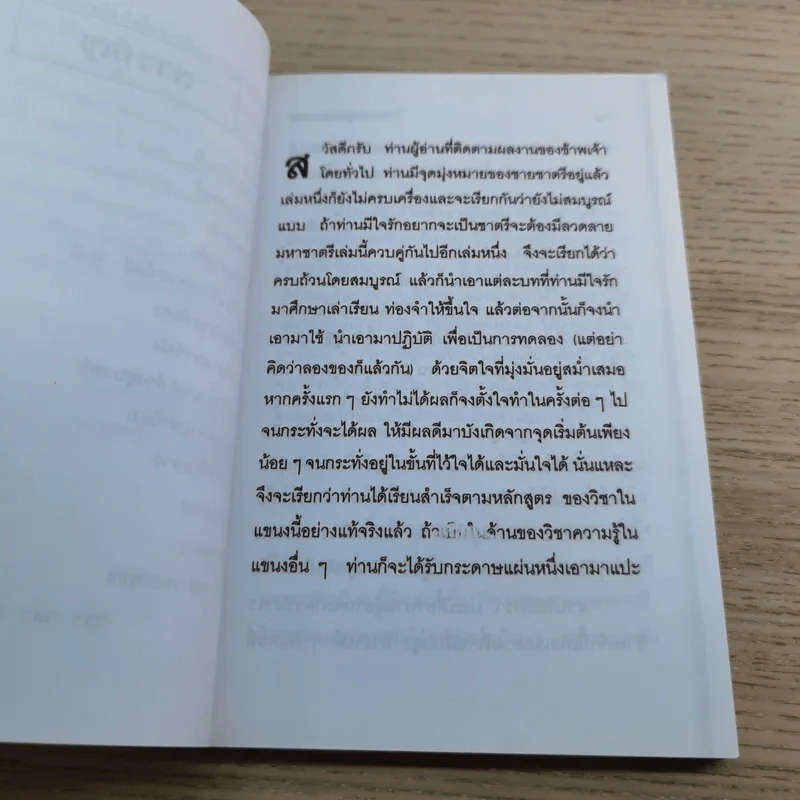 สวัสดีกรับ ท่านผู้อ่านที่ติดตามผลงานของข้าพเจ้า
โดยทั่วไป ท่านมีจุดมุ่งหมายของชายชาตรีอยู่แล้ว
เล่มหนึ่งก็ยังไม่ครบเครื่องและจะเรียกกันว่ายังไม่สมบูรณ์
แบบ ถ้าท่านมีใจรักอยากจะเป็นชาตรีจะต้องมีลวดลาย
มหาชาตรีเล่มนี้ควบคู่กันไปอีกเล่มหนึ่ง จึงจะเรียกได้ว่า
ครบถ้วนโดยสมบูรณ์ แล้วก็นำเอาแต่ละบทที่ท่านมีใจรัก
มาศึกษาเล่าเรียน ท่องจำให้ขึ้นใจ แล้วต่อจากนั้นก็จงนำ
เอามาใช้ นำเอามาปฏิบัติ เพื่อเป็นการทดลอง (แต่อย่า
คิดว่าลองของก็แล้วกัน) ด้วยจิตใจที่มุ่งมั่นอยู่สม่ำเสมอ
หากครั้งแรก ๆ ยังทำไม่ได้ผลก็จงตั้งใจทำในครั้งต่อ ๆ ไป
จนกระทั่งจะได้ผล ให้มีผลดีมาบังเกิดจากจุดเริ่มต้นเพียง
น้อย ๆ จนกระทั่งอยู่ในขั้นที่ไว้ใจได้และมั่นใจได้ นั่นแหละ
จึงจะเรียกว่าท่านได้เรียนสำเร็จตามหลักสูตร ของวิชาใน
แขนงนี้อย่างแท้จริงแล้ว ถ้าเป็นในด้านของวิชาความรู้ใน
แขนงอื่น ๆ ท่านก็จะได้รับกระดาษแผ่นหนึ่งเอามาแปะ